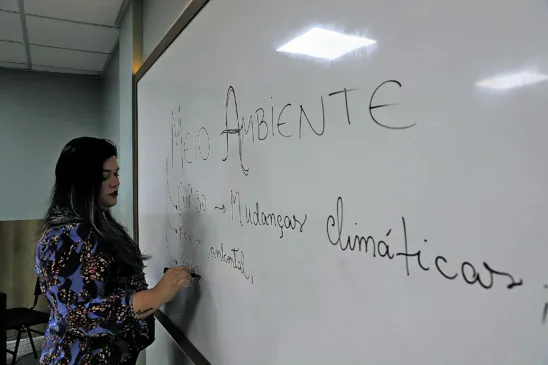 MEIO AMBIENTE
COP 30 → Mudanças climáticas
ambiental,